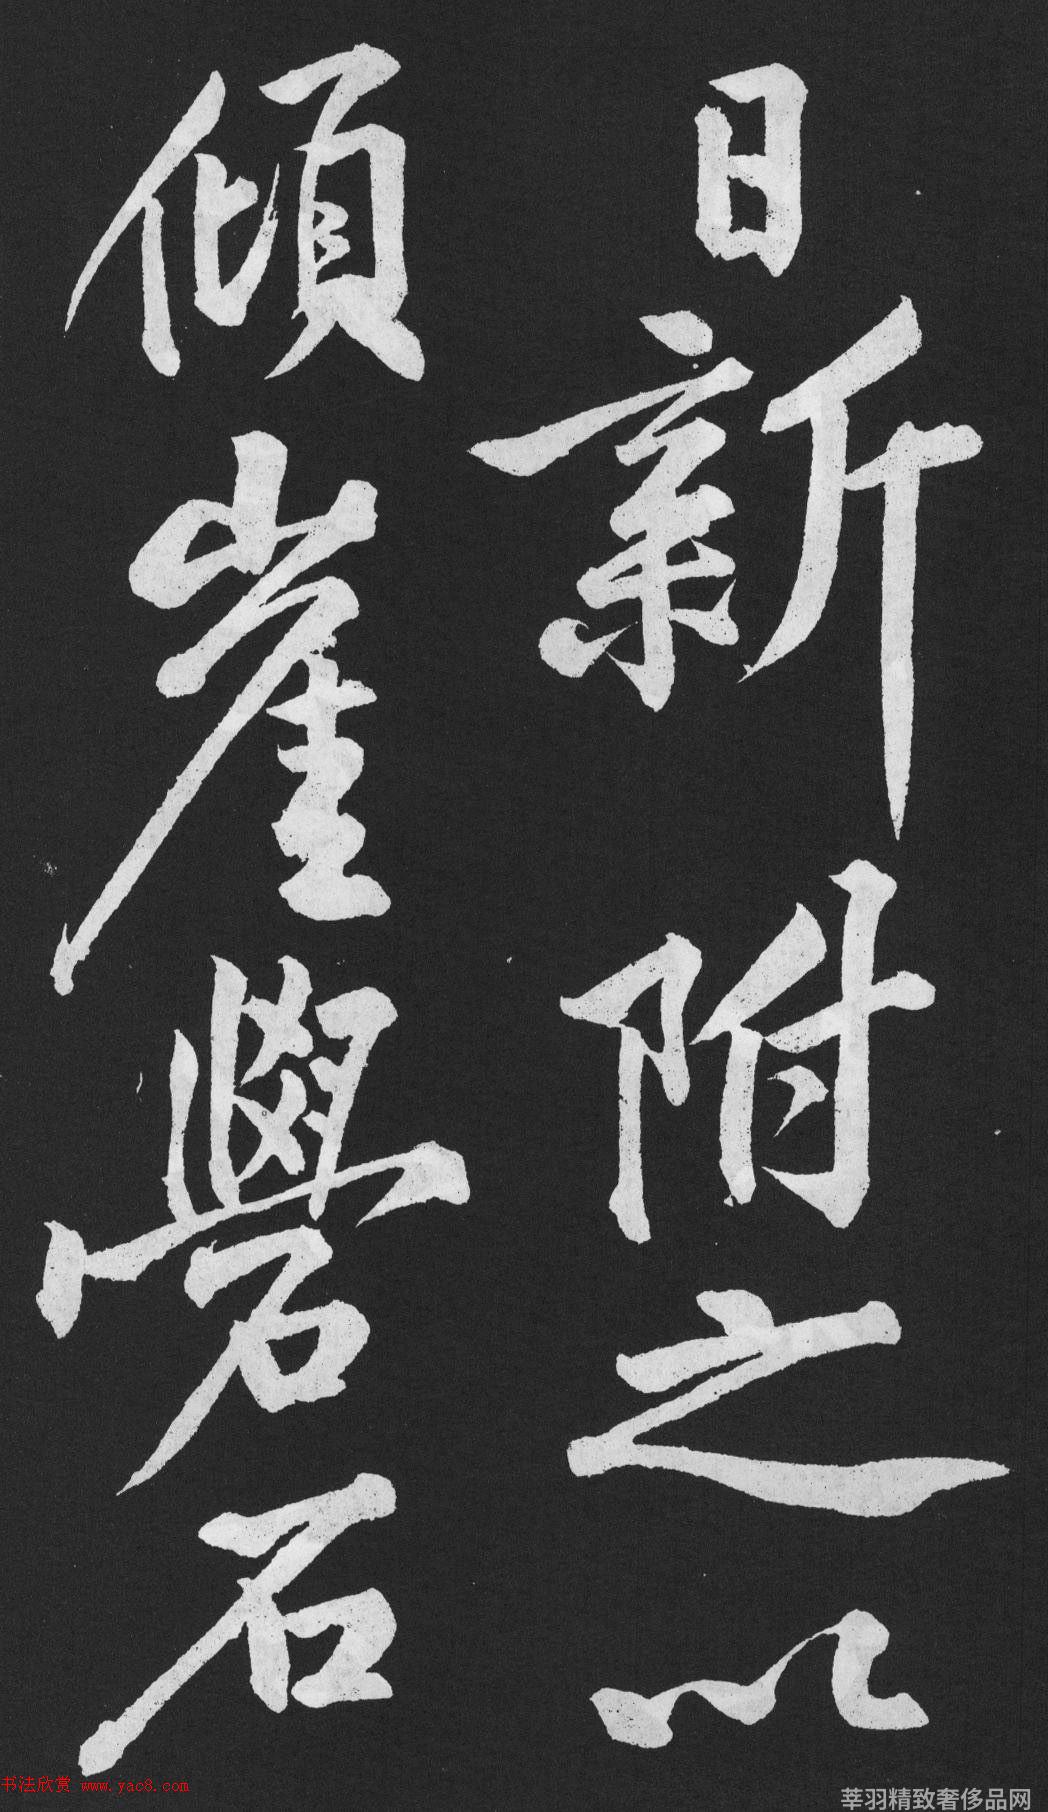 日新附之以
傾崖礐石
书法欣赏 www.yac8.com
莘羽精致奢侈品网